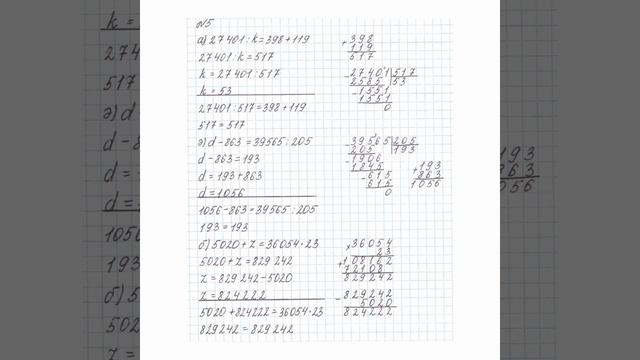 №5
а) 27401 : k = 398 + 119
27401 : k = 517
k = 27401 : 517
k = 53
27401 : 517 = 398 + 119
517 = 517
д) d - 863 = 39565 : 205
d - 863 = 193
d = 193 + 863
d = 1056
1056 - 863 = 39565 : 205
193 = 193
б) 5020 + z = 36054 · 23
5020 + z = 829242
z = 829242 - 5020
z = 824222
5020 + 824222 = 36054 · 23
829242 = 829242
+ 398
119
517
- 27401 | 517
2585 | 53
- 1551
1551
0
- 39565 | 205
205 | 193
- 1906
1845
- 615
615
0
+ 193
863
1056
× 36054
23
+ 108162
72108
829242
- 829242
5020
824222